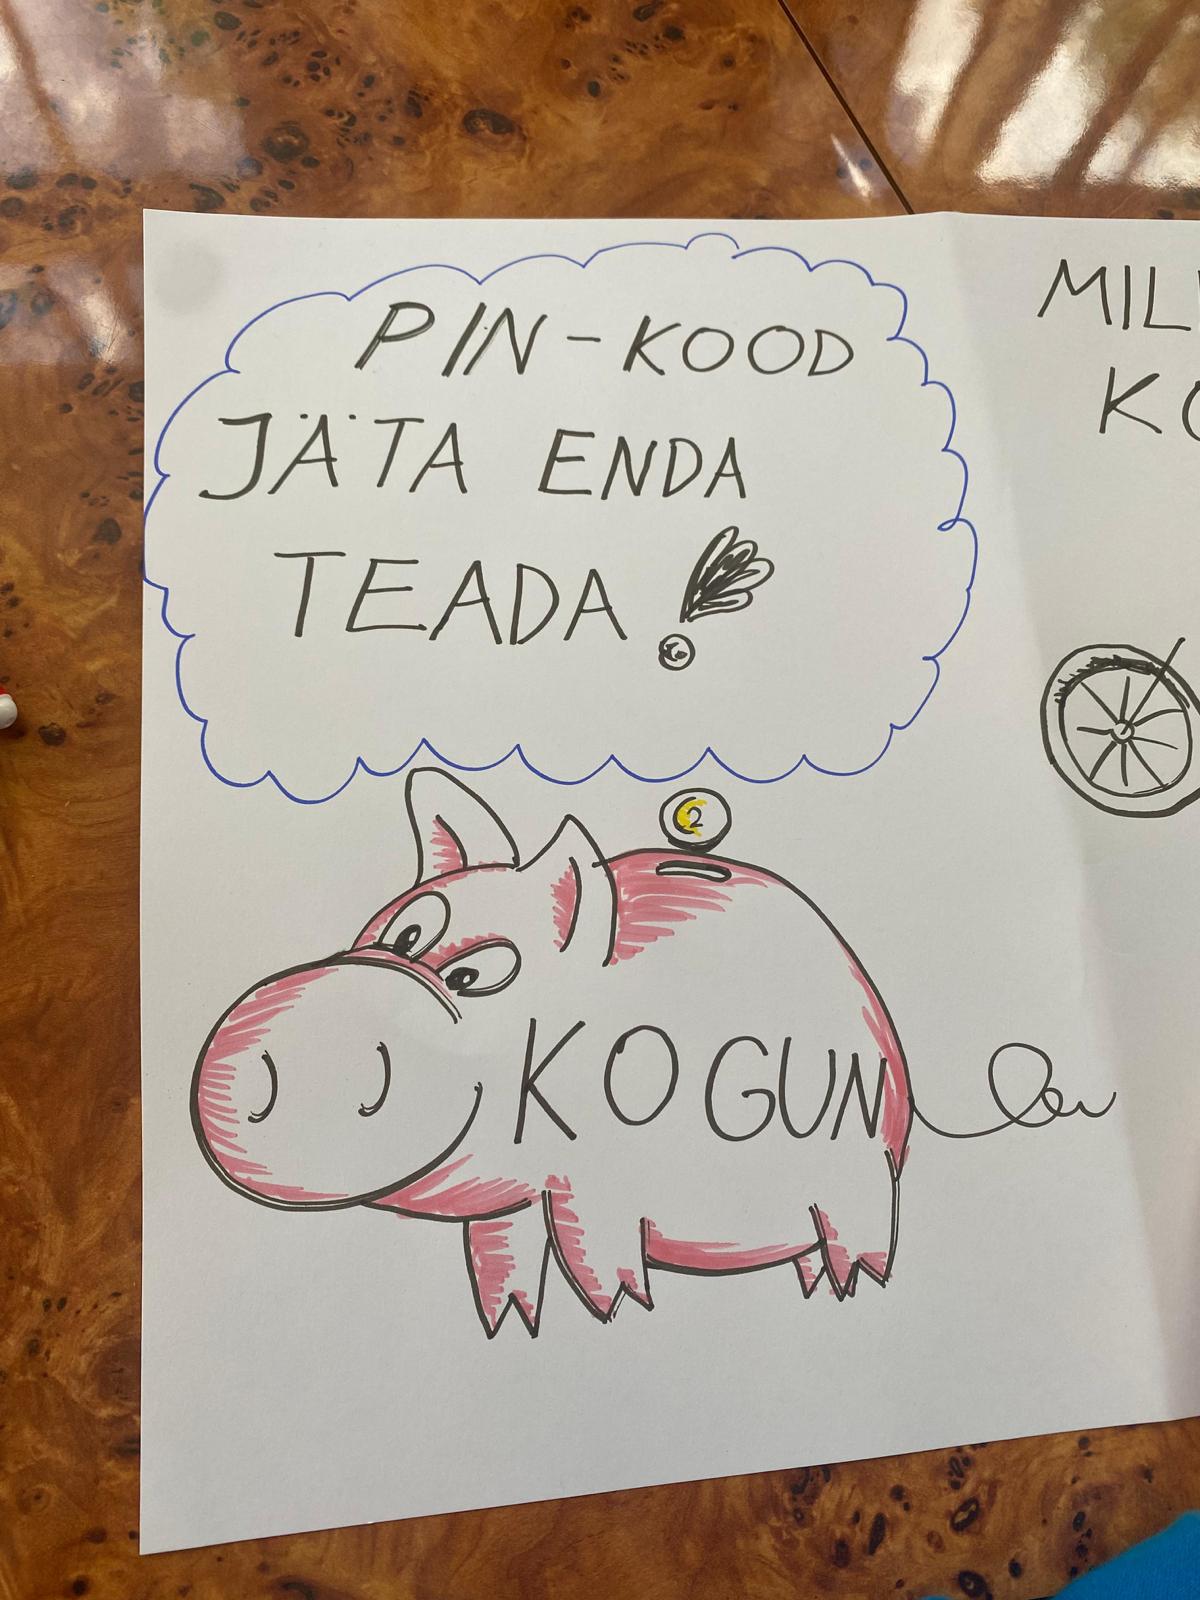 PIN-KOOD
JÄTA ENDA
TEADA!
2
KOGUN
MIL
K